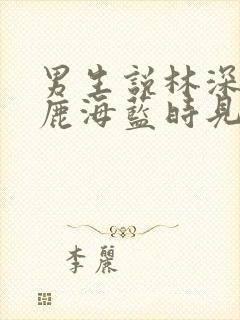 男生說林深
鹿海藍時見
李麗